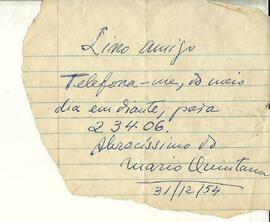 Lino amigo
Telefona-me, do meio
dia em diante, para
2 34 06.
Abracíssimo do
Mario Quintana
31/12/54